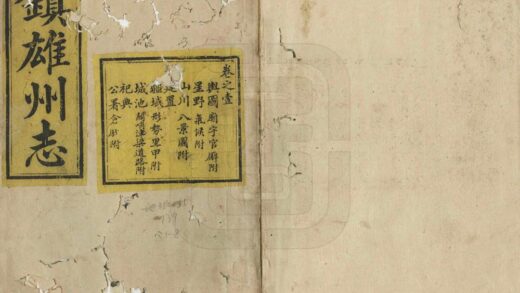 鎮雄州志
卷之壹
輿圖 廟宇官廨附
星野 氣候附
山川 八景圖附
建置
疆域 形勢里甲附
城池 關哨津梁道路附
祀典
公署 倉廒附